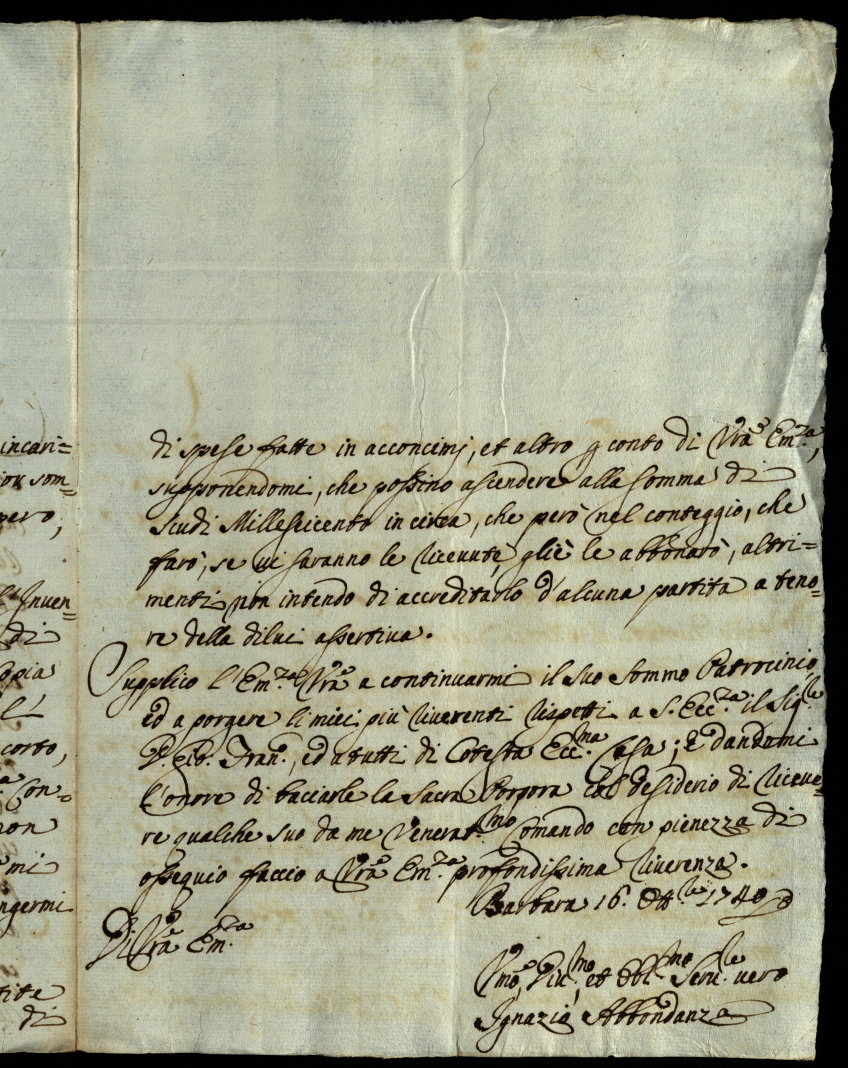 incari=
ior som=
pero,
Inven=
di
opia
l'
corto,
Con=
non
mi
ngermi
tite
di
di spese fatte in acconcimj, et altro p conto di Vrã Em.za,
supponendomi, che possino ascendere alla somma di
scudi Milleseicento in circa, che però nel conteggio, che
farò, se vi saranno le ricevute, gliè le abbonarò, altri=
menti non intendo di accreditarlo d'alcuna partita a teno=
re della dilui assertiva.
Supplico l'Em.za Vrã a continuarmi il suo sommo Patrocinio,
ed a porgere li miei più riverenti rispetti a S. Ecc.za il Sig.le
D. Gio. Fran., ed a tutti di Cotesta Ecc.ma Casa; E dandomi
l'onore di bacciarle la Sacra Porpora col desiderio di riceve=
re qualche suo da me Venerat.mo Comando con pienezza di
ossequio faccio a Vrã Em.za profondissima riverenza.
Barbara 16. Ott.le 1740
Di Vrã Em.za
Vmo, Div.mo, et Obl.mo Serv.le vero
Ignazio Abbondanza